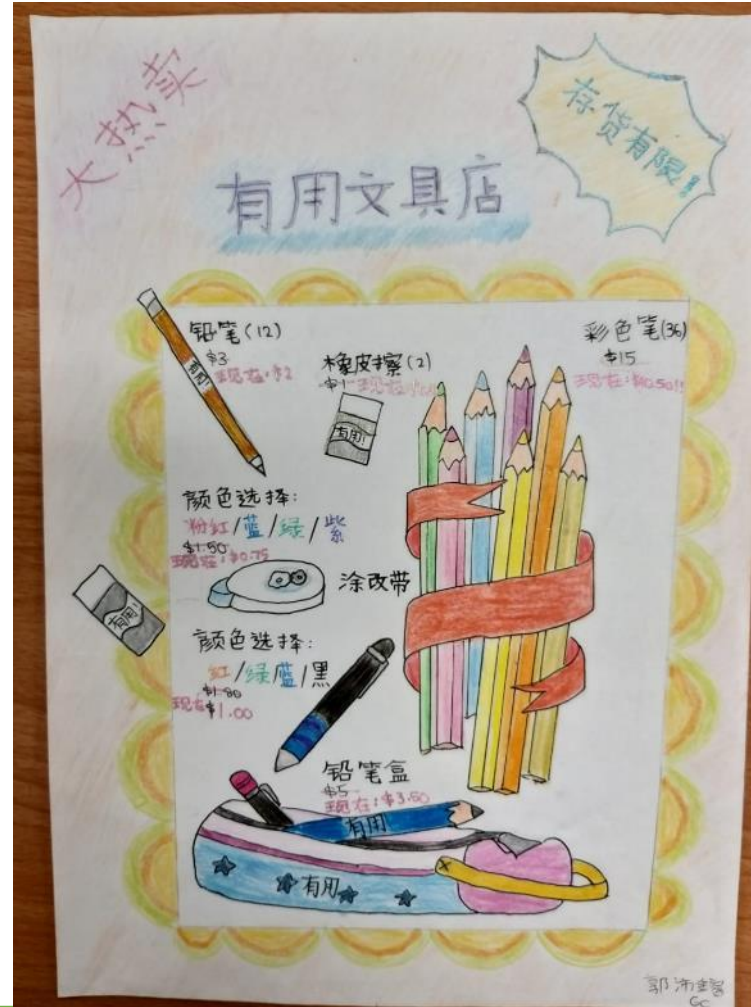 大热卖
存货有限!
有用文具店
铅笔(12)
$3
现在:$2
有用!
橡皮擦(2)
$1
有用!
彩色笔(36)
$15
现在:$10.50!!
颜色选择:
粉红/蓝/绿/紫
$1.50
现在:$0.75
涂改带
有用!
颜色选择:
红/绿/蓝/黑
$1.80
现在$1.00
铅笔盒
$5
现在:$3.50
有用
有用